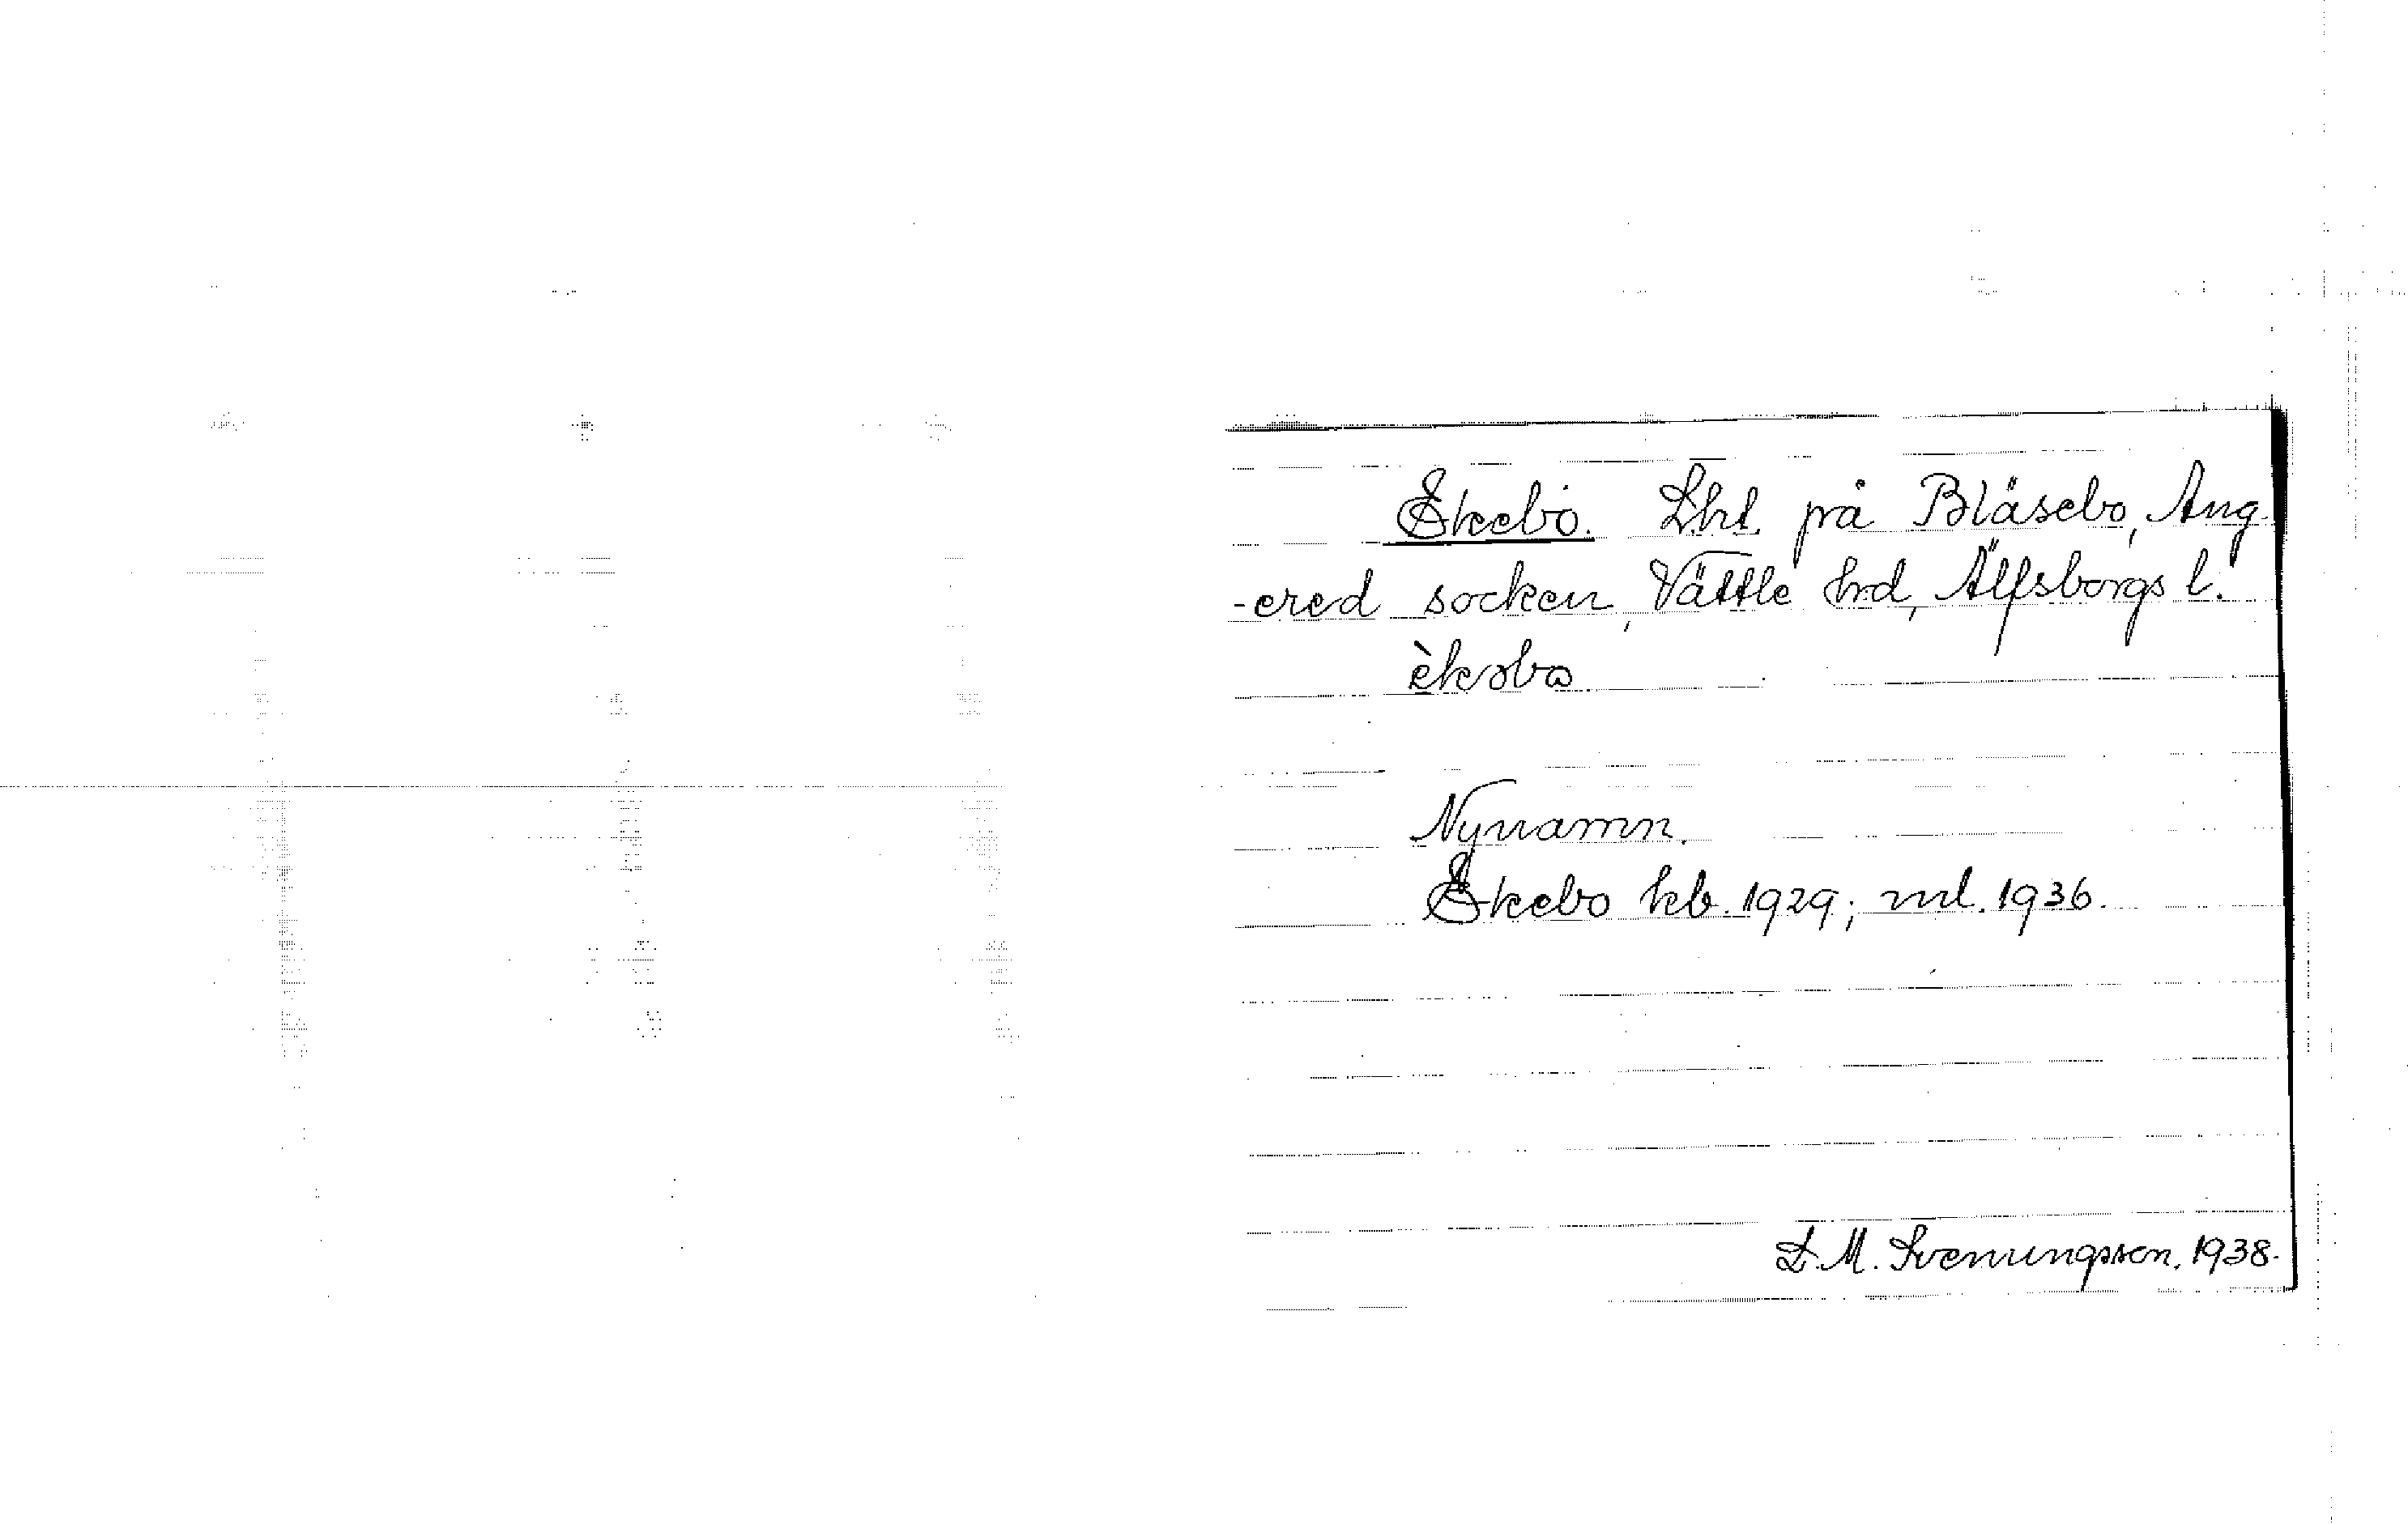 Ekebo. Lht. på Blåsebo, Ang-
-ered socken, Vättle hrd, Älfsborgs l.
èkobo
Nynamn.
Ekebo kb. 1929; ml. 1936.
L. M. Svenungsson, 1938.